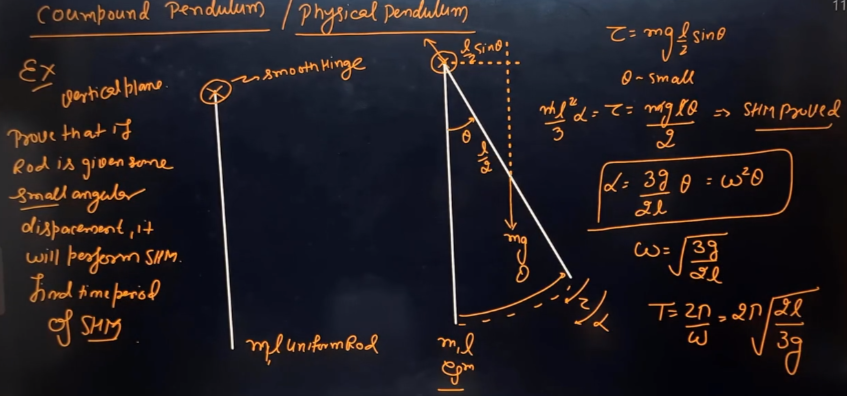 Coumpound Pendulum / Physical Pendulum
11
Ex
vertical plane.
Prove that if
Rod is given some
small angular
dispacement, it
will perform SHM.
find time period
of SHM
smooth Hinge
m,l uniform Rod
l/2 sinθ
θ
l/2
mg
m,l
eqm
τ/α
τ = mg l/2 sinθ
θ - small
ml²/3 α = τ = mglθ/2 => SHM Proved
α = 3g/2l θ = ω²θ
ω = √(3g/2l)
T = 2π/ω = 2π√(2l/3g)